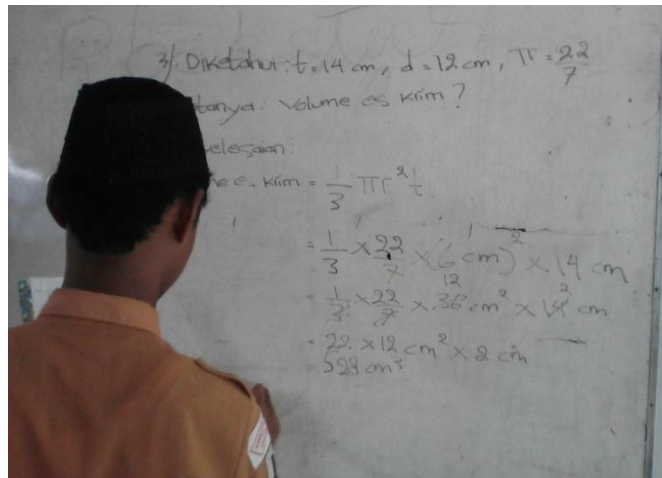 3). Diketahui : t = 14 cm, d = 12 cm, π = 22/7
tanya : Volume es krim ?
elesaian :
e. krim = 1/3 πr²t
= 1/3 × 22/7 × (6 cm)² × 14 cm
= 1/3 × 22/7 × 36 12 cm² × 14 2 cm
= 22 × 12 cm² × 2 cm
= 528 cm³